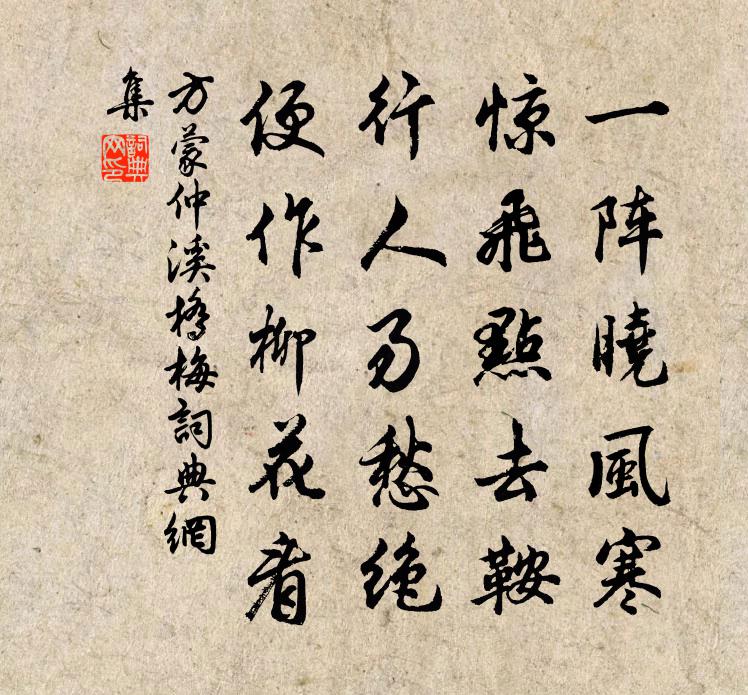 一阵曉風寒
惊飛點去鞍
行人勿愁绝
便作柳花看
方蒙仲溪橋梅詞典網
集
詞典网印